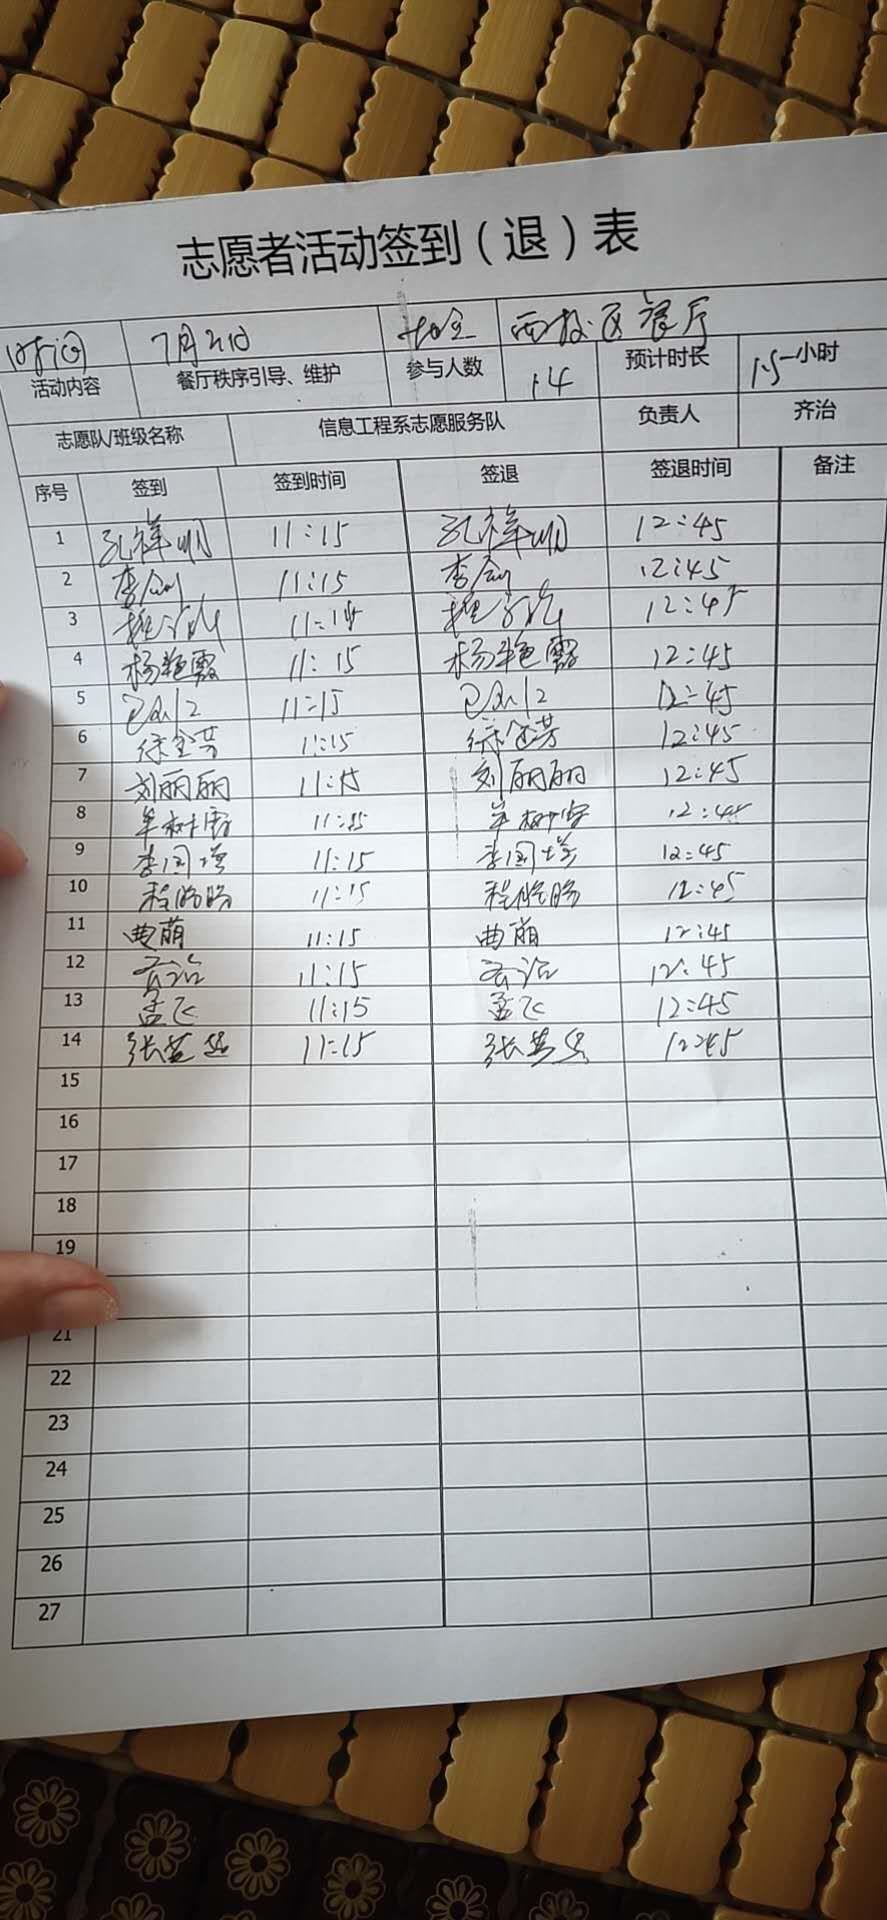 志愿者活动签到（退）表
时间 7月21日 地点 西校区餐厅
活动内容 餐厅秩序引导、维护 参与人数 14 预计时长 1.5一小时
志愿队/班级名称 信息工程系志愿服务队 负责人 齐治
序号 签到 签到时间 签退 签退时间 备注
1 孔祥明 11:15 孔祥明 12:45
2 李剑 11:15 李剑 12:45
3 12:45
4 杨艳霞 11:15 杨艳霞 12:45
5 11:15 12:45
6 徐金芳 11:15 徐金芳 12:45
7 刘丽丽 11:15 刘丽丽 12:45
8 11:15 12:45
9 李国增 11:15 李国增 12:45
10 程晓鹏 11:15 程晓鹏 12:45
11 曲萌 11:15 曲萌 12:45
12 齐治 11:15 齐治 12:45
13 孟飞 11:15 孟飞 12:45
14 11:15 12:45
15
16
17
18
19
21
22
23
24
25
26
27